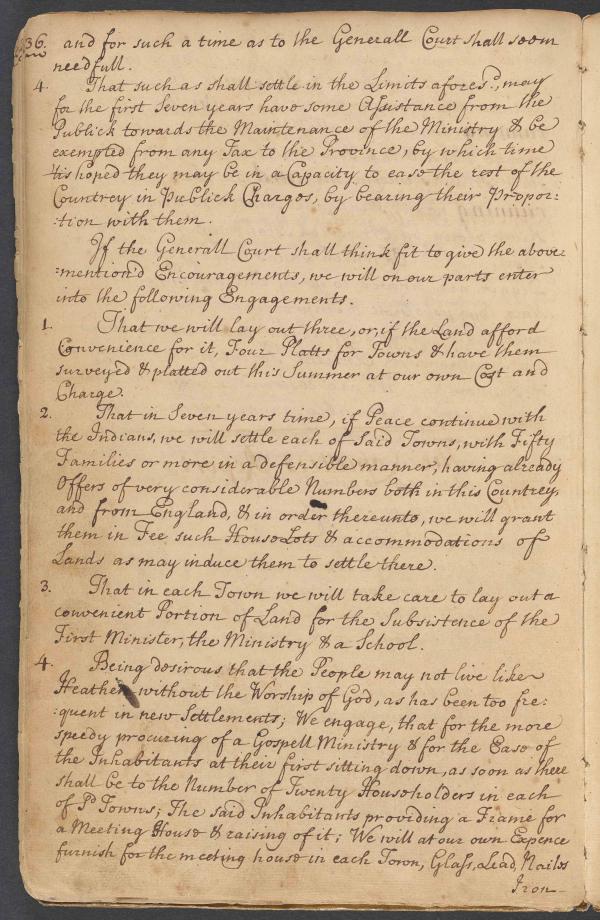 36. and for such a time as to the Generall Court shall seem
needfull.
4. That such as shall settle in the Limits aforesd., may
for the first Seven years have some Assistance from the
Publick towards the Maintenance of the Ministry & be
exempted from any Tax to the Province, by which time
tis hoped they may be in a Capacity to ease the rest of the
Countrey in Publick Charges, by bearing their Propor:
:tion with them.
If the Generall Court shall think fit to give the above:
:mention'd Encouragements, we will on our parts enter
into the following Engagements.
1. That we will lay out three, or, if the Land afford
Convenience for it, Four Platts for Towns & have them
surveyed & platted out this Summer at our own Cost and
Charge.
2. That in Seven years time, if Peace continue with
the Indians, we will settle each of said Towns, with Fifty
Families or more in a defensible manner, having already
Offers of very considerable Numbers both in this Countrey,
and from England, & in order thereunto, we will grant
them in Fee such House Lots & accommodations of
Lands as may induce them to settle there.
3. That in each Town we will take care to lay out a
convenient Portion of Land for the Subsistence of the
First Minister, the Ministry & a School.
4. Being desirous that the People may not live like
Heathen without the Worship of God, as has been too fre:
:quent in new Settlements; We engage, that for the more
speedy procuring of a Gospell Ministry & for the Ease of
the Inhabitants at their first sitting down, as soon as there
shall be to the Number of Twenty Householders in each
of sd Towns; The said Inhabitants providing a Frame for
a Meeting House & raising of it; We will at our own Expence
furnish for the meeting house in each Town, Glass, Lead, Nailes
Iron